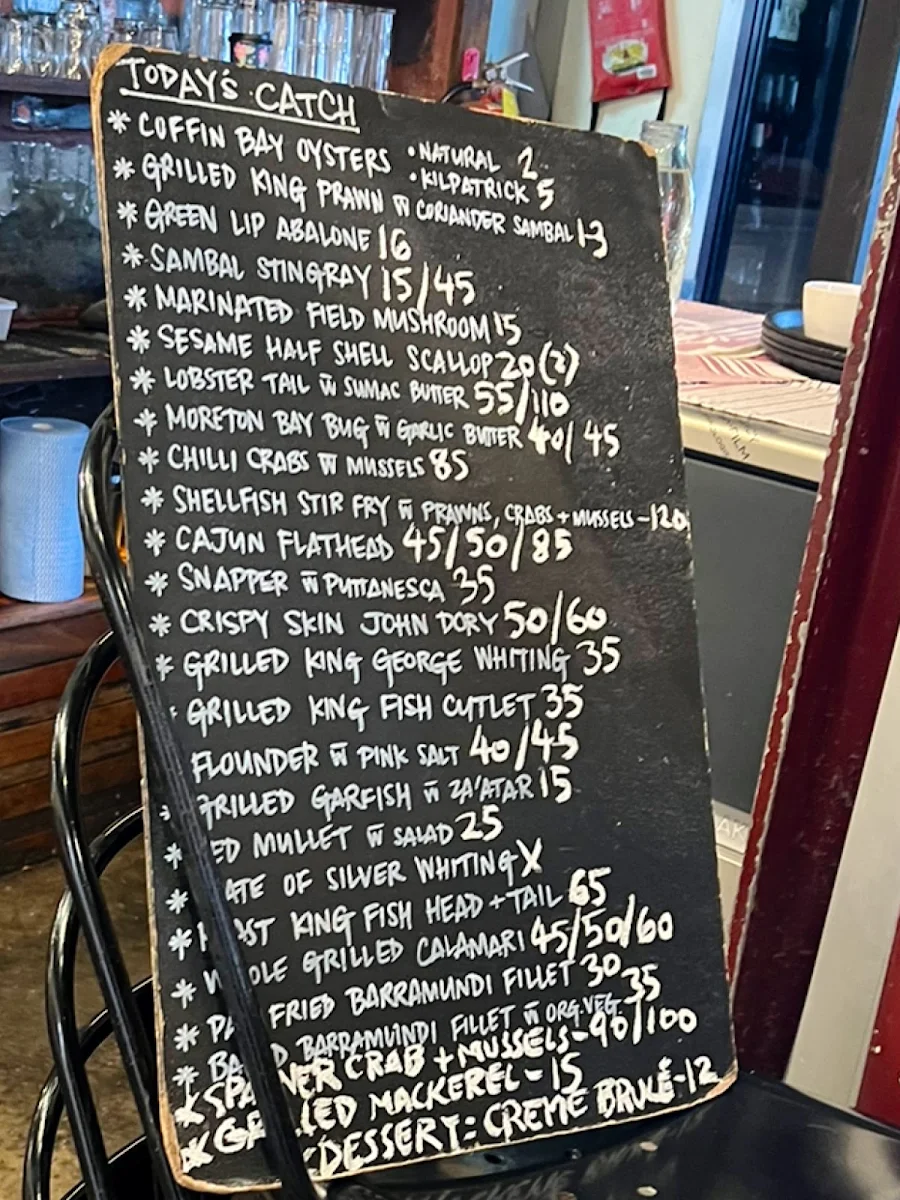 TODAY'S CATCH
* COFFIN BAY OYSTERS • NATURAL 2
• KILPATRICK 5
* GRILLED KING PRAWN w̅ CORIANDER SAMBAL 13
* GREEN LIP ABALONE 16
* SAMBAL STINGRAY 15/45
* MARINATED FIELD MUSHROOM 15
* SESAME HALF SHELL SCALLOP 20 (2)
* LOBSTER TAIL w̅ SUMAC BUTTER 55/110
* MORETON BAY BUG w̅ GARLIC BUTTER 40/45
* CHILLI CRABS w̅ MUSSELS 85
* SHELLFISH STIR FRY w̅ PRAWNS, CRABS + MUSSELS - 120
* CAJUN FLATHEAD 45/50/85
* SNAPPER w̅ PUTTANESCA 35
* CRISPY SKIN JOHN DORY 50/60
* GRILLED KING GEORGE WHITING 35
* GRILLED KING FISH CUTLET 35
FLOUNDER w̅ PINK SALT 40/45
* GRILLED GARFISH w̅ ZA'ATAR 15
* ED MULLET w̅ SALAD 25
* ATE OF SILVER WHITING X
* ST KING FISH HEAD + TAIL 65
* WHOLE GRILLED CALAMARI 45/50/60
* PA FRIED BARRAMUNDI FILLET 30
* BA D BARRAMUNDI FILLET w̅ ORG. VEG 35
* SPANNER CRAB + MUSSELS - 90/100
* GRILLED MACKEREL - 15
* DESSERT: CREME BRULÉ - 12